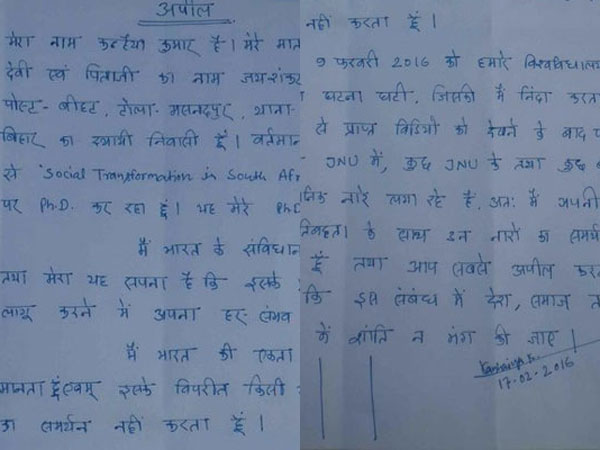 अपील
मेरा नाम कन्हैया कुमार है। मेरे
देवी एवं पिताजी का नाम जय शंकर
पोस्ट- बीहट, टोला- मसनदपुर, थाना-
बिहार का स्थायी निवासी हूँ। वर्तमान
से 'Social Transformation in South
पर Ph.D. कर रहा हूँ। यह मेरे
मैं भारत के संविधान
तथा मेरा यह सपना है कि इसके
लागू करने में अपना हर संभव
मैं भारत की एकता
मानता हूँ एवम् इसके विपरीत किसी
का समर्थन नहीं करता हूँ।
नहीं करता हूँ।
9 फरवरी 2016 को हमारे
घटना घटी, जिसकी मैं निंदा
से प्राप्त विडियो को देखने के बाद
JNU में, कुछ JNU के तथा कुछ
नारे लगा रहे हैं, अतः मैं अपनी
के साथ इन नारों का
हूँ तथा आप सबसे अपील
कि इस संबंध में देश, समाज
में शांति न भंग की जाए।
17-02-2016